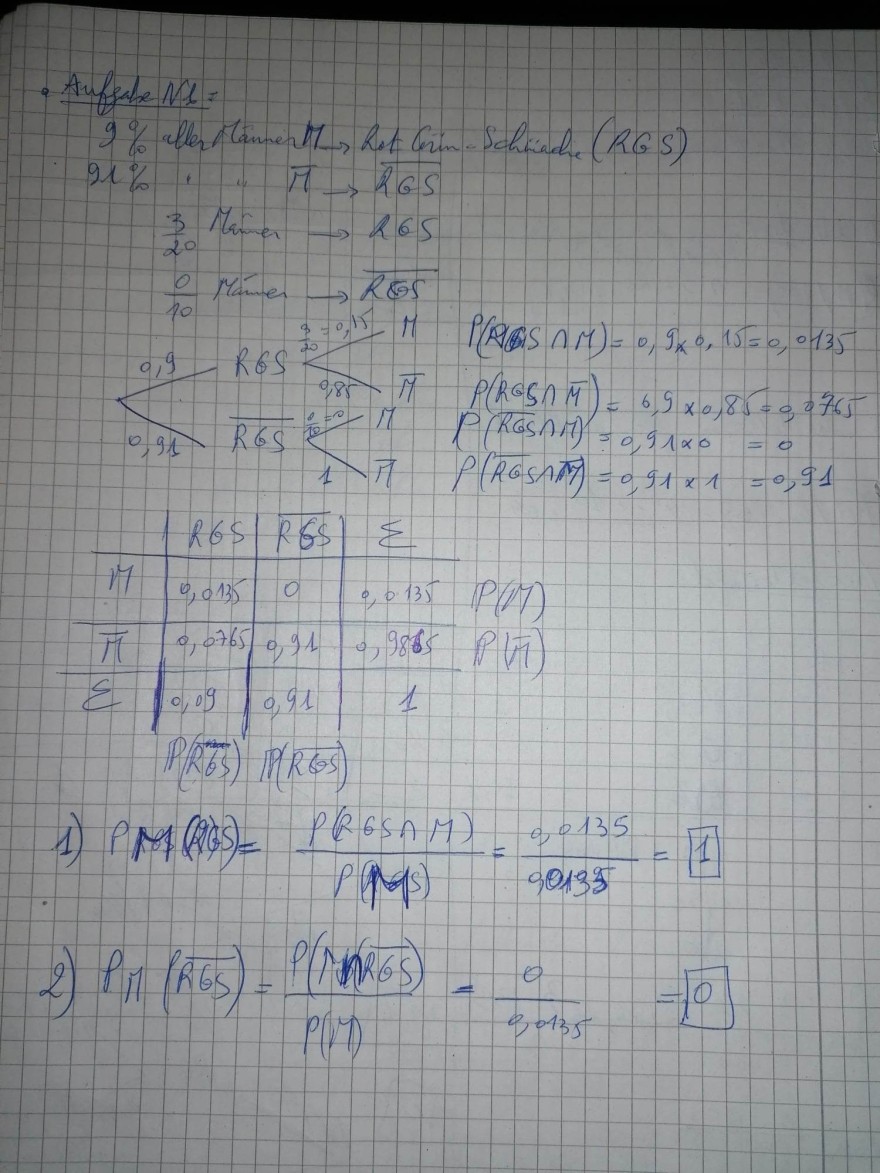 • Aufgabe N1=
9% aller Männer M → Rot Grün-Schwäche (RGS)
91% " " M̅ → R̅G̅S̅
3/20 Männer → RGS
0/10 Männer → R̅G̅S̅
0,9 RGS 3/20 = 0,15 M P(RGS ∩ M) = 0,9 x 0,15 = 0,0135
0,85 M̅ P(RGS ∩ M̅) = 0,9 x 0,85 = 0,0765
0,91 R̅G̅S̅ 0/10 = 0 M P(R̅G̅S̅ ∩ M) = 0,91 x 0 = 0
1 M̅ P(R̅G̅S̅ ∩ M̅) = 0,91 x 1 = 0,91
RGS R̅G̅S̅ Σ
M 0,0135 0 0,0135 P(M)
M̅ 0,0765 0,91 0,9865 P(M̅)
Σ 0,09 0,91 1
P(R̅G̅S̅) P(R̅G̅S̅)
1) P (RGS) = P(RGS ∩ M) / P( ) = 0,0135 / 0,0135 = 1
2) P_M (R̅G̅S̅) = P(M ∩ R̅G̅S̅) / P(M) = 0 / 0,0135 = 0